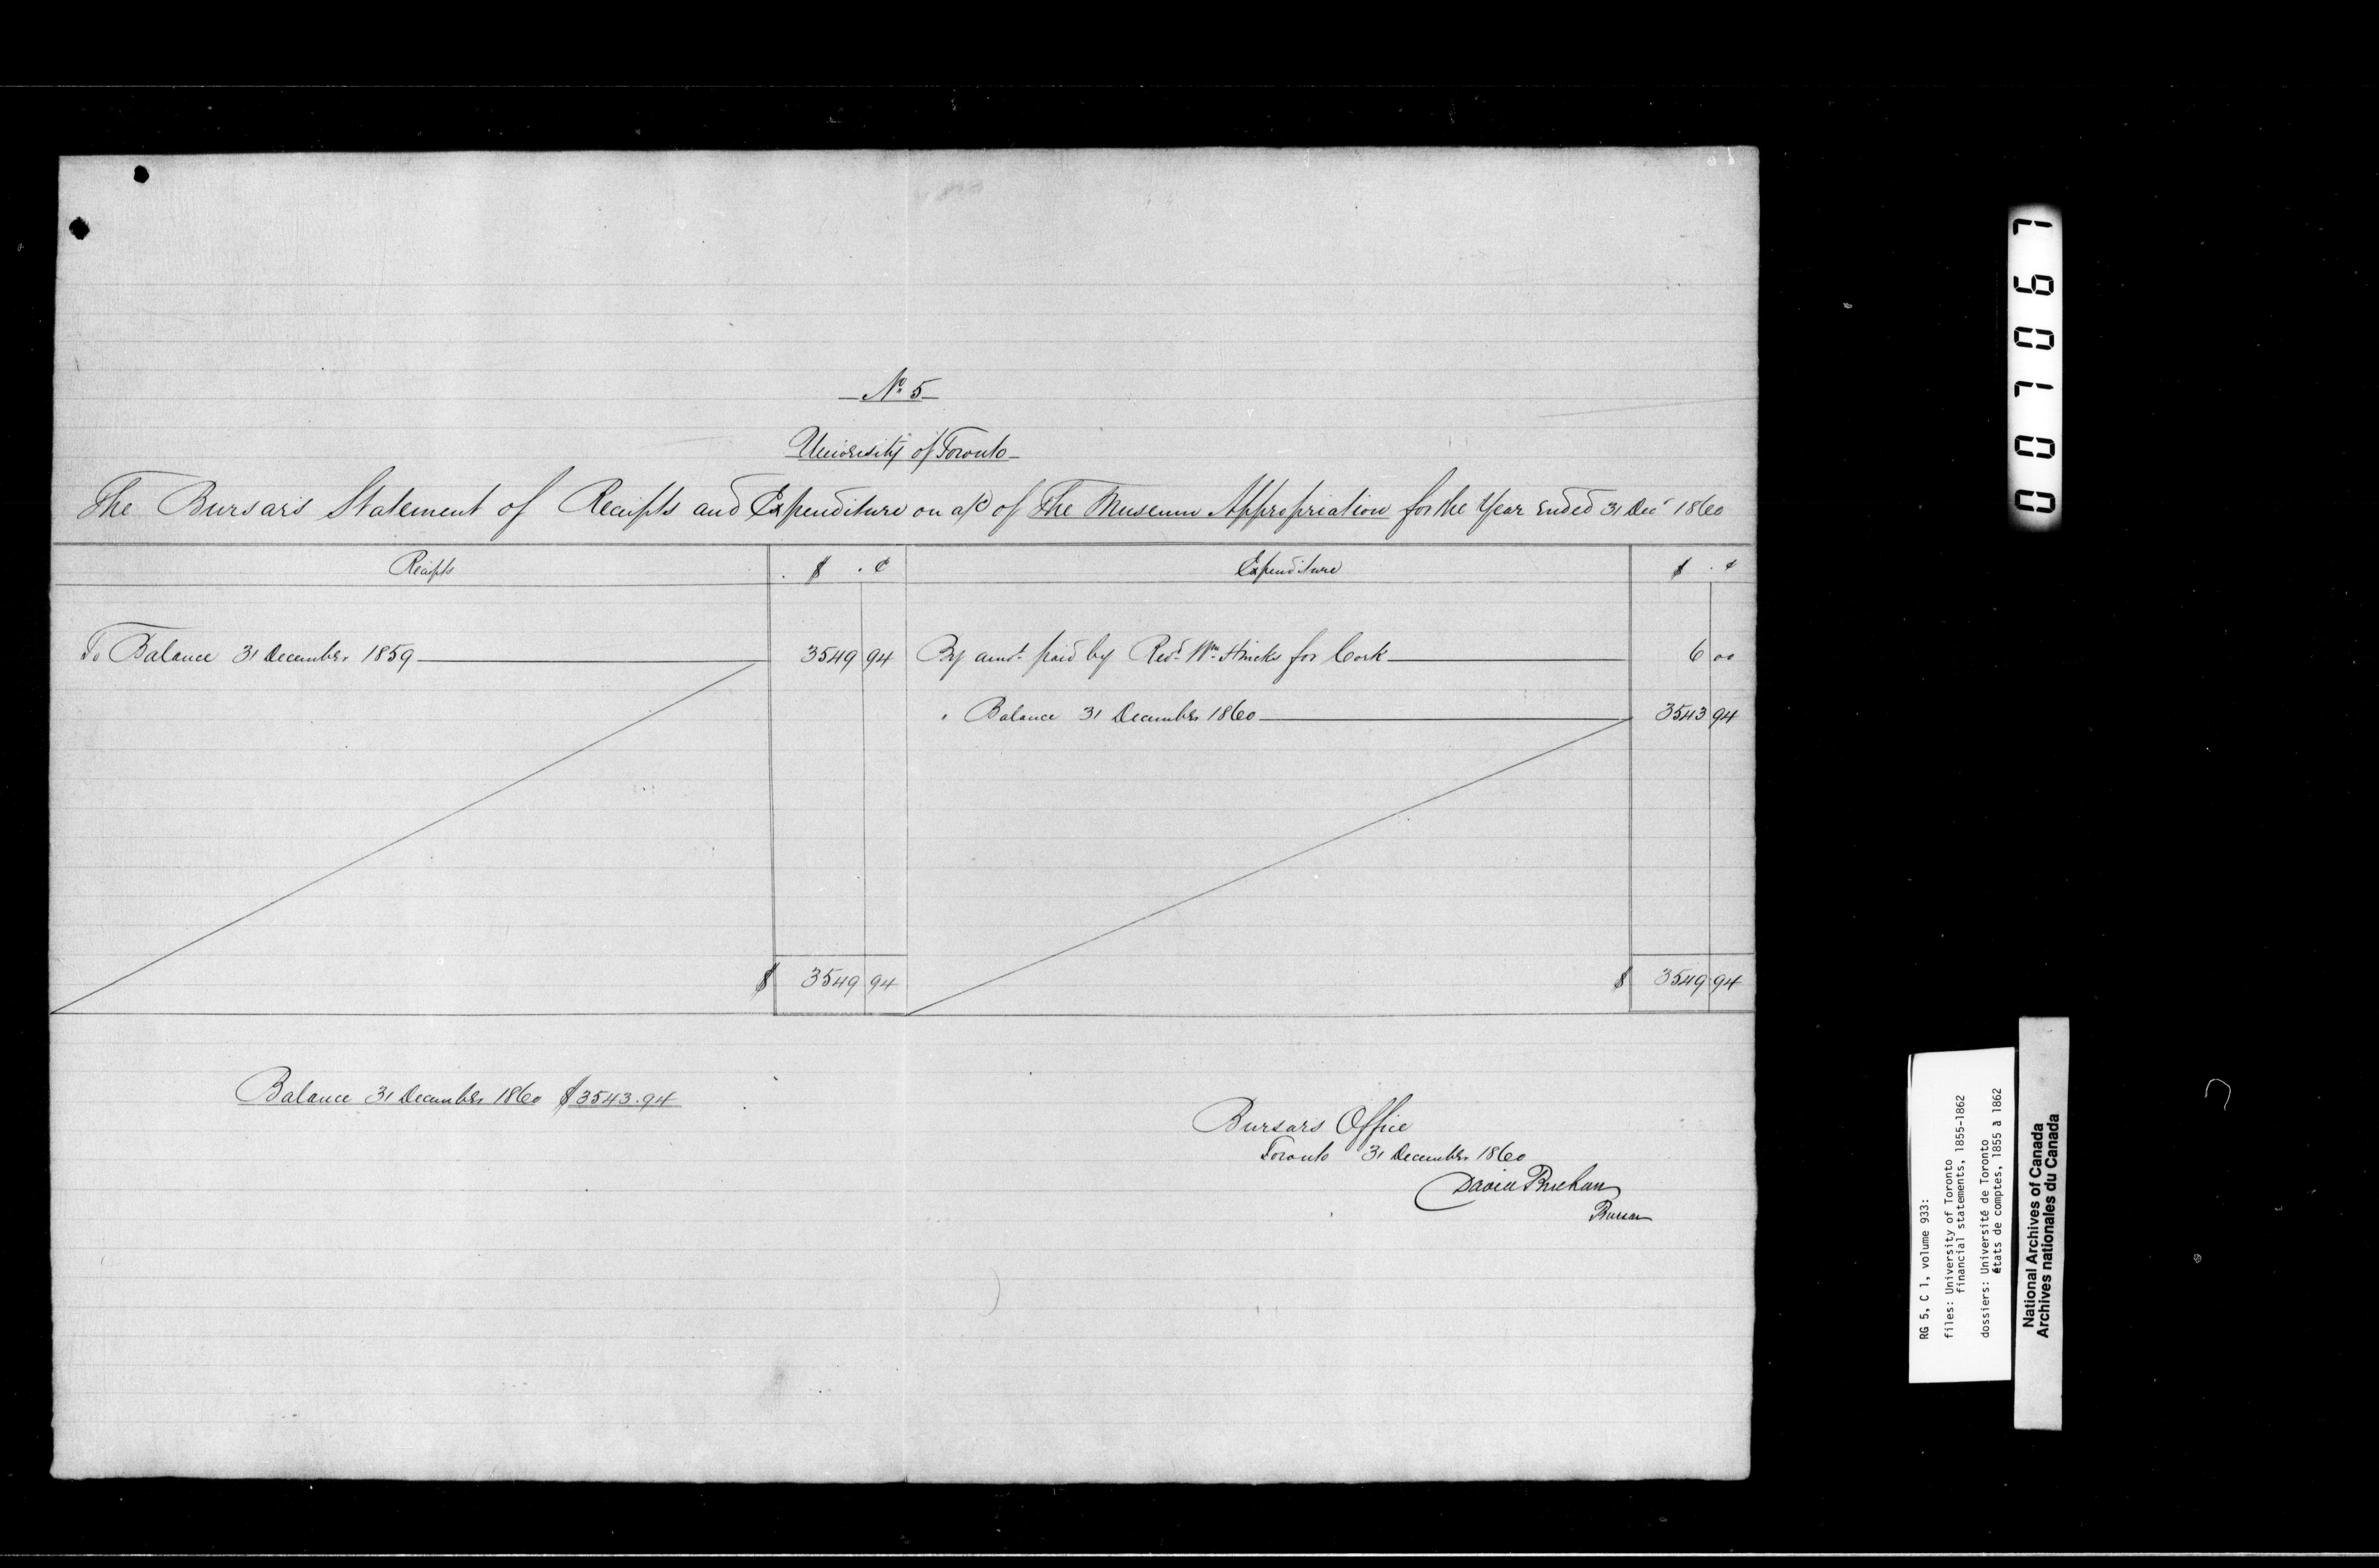 No 5
University of Toronto
The Bursar's Statement of Receipts and Expenditure on a/c of The Museum Appropriation for the Year Ended 31 Decr 1860
Receipts $ ¢ Expenditure $ ¢
To Balance 31 December 1859 3549 94 By amot. paid by Revd. Wm. Hincks for Cork 6 00
" Balance 31 December 1860 3543 94
$ 3549 94 $ 3549 94
Balance 31 December 1860 $3543.94
Bursars Office
Toronto 31 December 1860
David Buchan
Bursar
007067
RG 5, C 1, volume 933:
files: University of Toronto
financial statements, 1855-1862
dossiers: Université de Toronto
états de comptes, 1855 à 1862
National Archives of Canada
Archives nationales du Canada